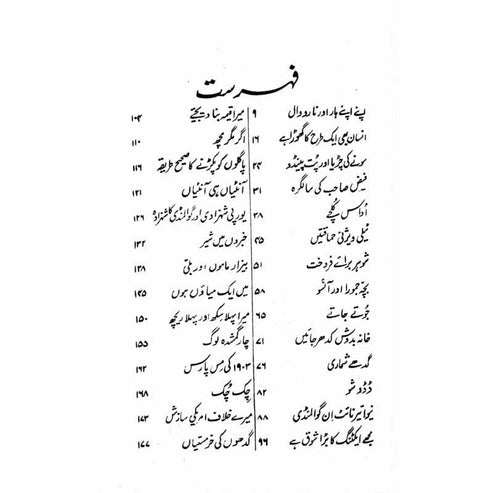 فہرست
اپنے اپنے ہار اور نارووال ۹
انسان بھی ایک طرح کا گھوڑا ہے ۱۶
سونے کی چڑیا اور پُت پینڈو ۲۴
فیض صاحب کی سالگرہ ۳۱
اُداس کُلچے ۳۸
ٹیلی ویژنی حماقتیں ۴۵
شوہر برائے فروخت ۵۱
بچہ جمورا اور آنسو ۵۸
جُوتے جاتے ۶۵
خانہ بدوش کدھر جائیں ۷۱
گدھے شماری ۷۶
دُڈو شو ۸۲
نیو ائیر نائٹ اِن گوالمنڈی ۸۸
مجھے ایکٹنگ کا بڑا شوق ہے ۹۶
میرا قیمہ بنا دیجئے ۱۰۴
اگر مگر مچھ ۱۱۰
پاگلوں کو پکڑنے کا صحیح طریقہ ۱۱۶
آنٹیاں ہی آنٹیاں ۱۲۱
یورپی شہزادی اور گوالمنڈی کا شہزادہ ۱۲۶
خبروں میں شیر ۱۳۲
بیزار ماموں اور بلی ۱۳۸
میں ایک میاؤں ہوں ۱۴۵
میرا پہلا سِکھ اور پہلا ریچھ ۱۵۰
چار گمشدہ لوگ ۱۵۵
۱۹۰۳ کی مِس پارس ۱۶۲
چِک چُک ۱۶۸
میرے خلاف امریکی سازش ۱۷۳
گدھوں کی خرمستیاں ۱۷۷